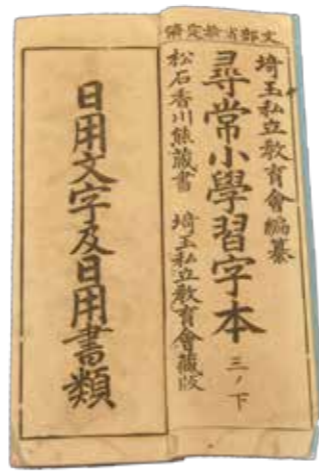 文部省検定済
埼玉私立教育會編纂
尋常小學習字本 三ノ下
松石香川熊藏書 埼玉私立教育會藏版
日用文字及日用書類